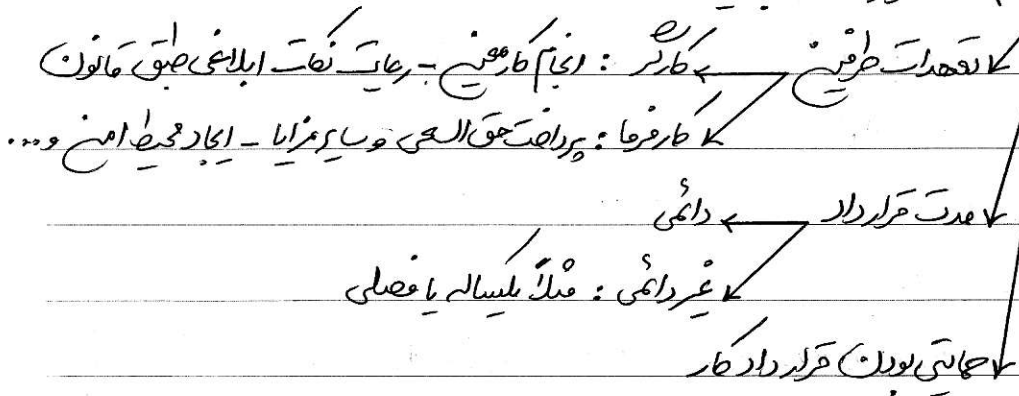 تعهدات طرفین ← کارگر : انجام کار معین - رعایت نکات ابلاغی طبق قانون
کارفرما : پرداخت حق السعی و سایر مزایا - ایجاد محیط امن و...
مدت قرارداد ← دائمی
غیر دائمی : مثلاً یکساله یا فصلی
حمایتی بودن قرارداد کار